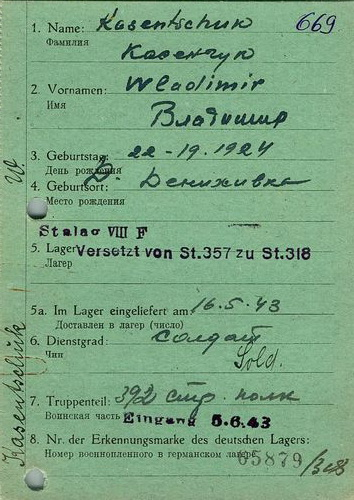 669
1. Name: Kasentschuk
Фамилия Казенчук
2. Vornamen: Wladimir
Имя Владимир
3. Geburtstag: 22-19.1924
День рождения
4. Geburtsort: Дениживка
Место рождения
Stalag VIII F
5. Lager Versetzt von St.357 zu St.318
Лагер
5a. Im Lager eingeliefert am 16.5.43
Доставлен в лагер (число)
6. Dienstgrad: солдат
Чин Sold.
7. Truppenteil: 392 стр. полк
Воинская часть Eingang 5.6.43
8. Nr. der Erkennungsmarke des deutschen Lagers:
Номер военнопленного в германском лагере 65879/318
Kasentschuk W.